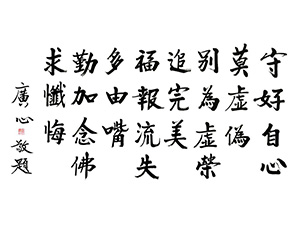 守好自心
莫虛偽
別為虛榮
追完美
福報流失
多由嘴
勤加念佛
求懺悔
廣心敬題